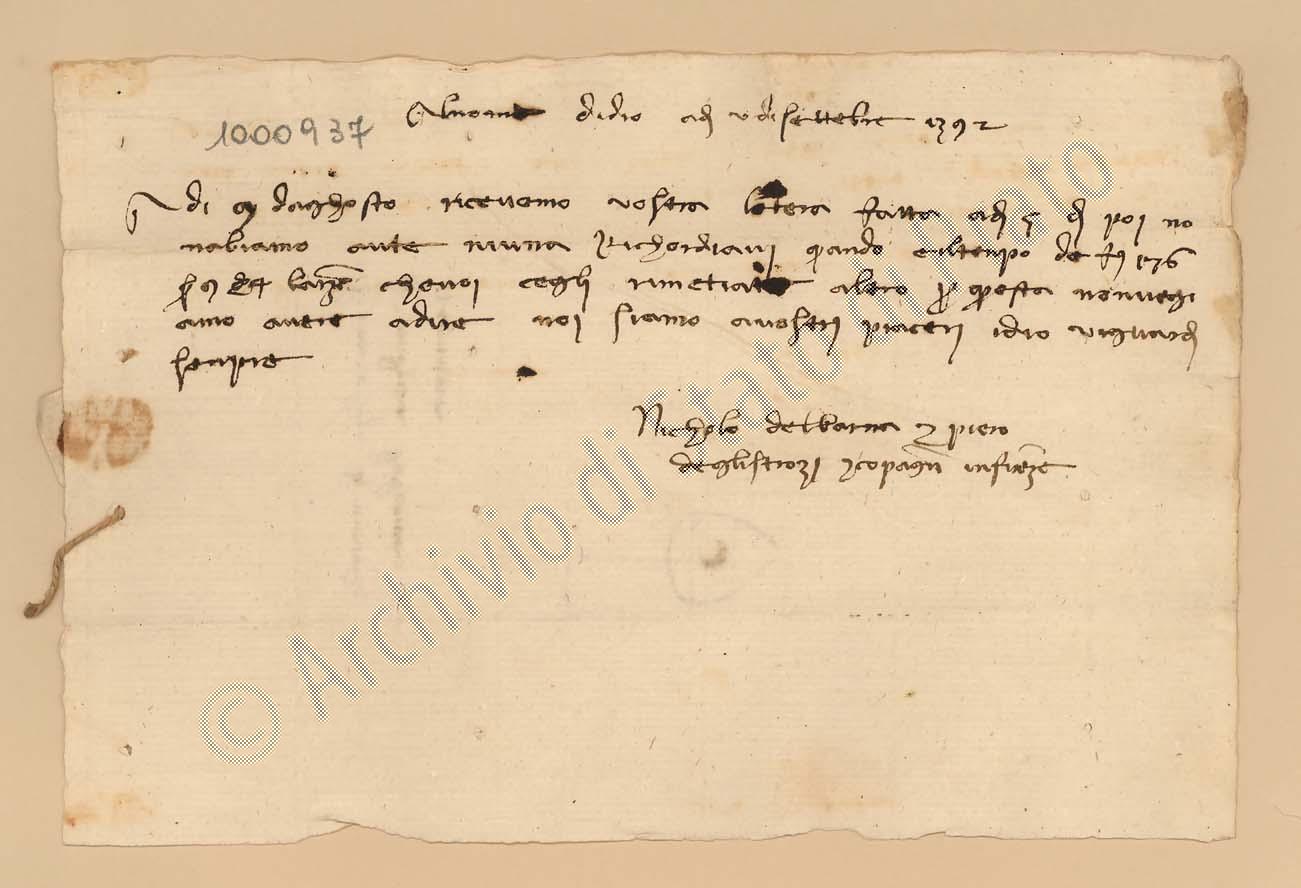 1000937
Al nome di dio ad v di settebre 1392
di daghosto ricevemo vostra letera fatta ad 5 d poi no
nabiamo aute niuna Richordiavi quando e iltenpo de
che voi cegli rimetiate altro p questa nonvegi
amo avere adire noi siamo avostri piaceri idio viguard
senpre
Nicholo e piero
deglistrozi e copagni infirenze
© Archivio di Stato di Prato